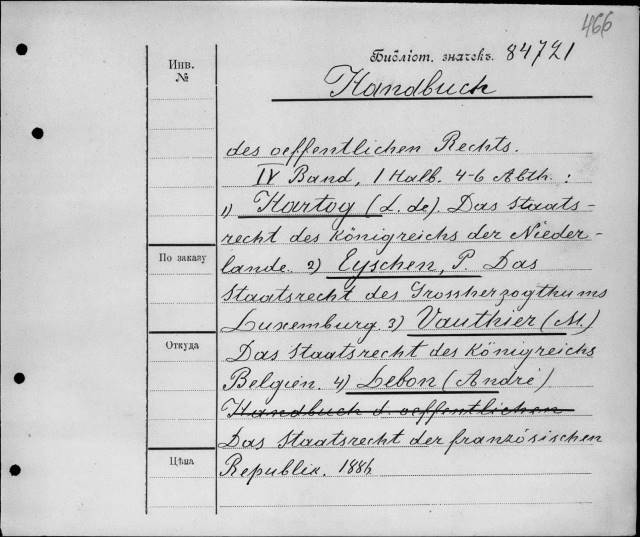 466
Инв.
№
Библіот. значекъ. 84721
Handbuch
des oeffentlichen Rechts.
IV Band, 1 Halb. 4-6 Abth. :
1) Hartog (L. de). Das Staats-
recht des Königreichs der Nieder-
По заказу
lande. 2) Eyschen, P. Das
Staatsrecht des Grossherzogthums
Luxemburg. 3) Vauthier (M.)
Откуда
Das Staatsrecht des Königreichs
Belgien. 4) Lebon (André)
Handbuch d. oeffentlichen
Das Staatsrecht der französischen
Цѣна
Republik. 1886